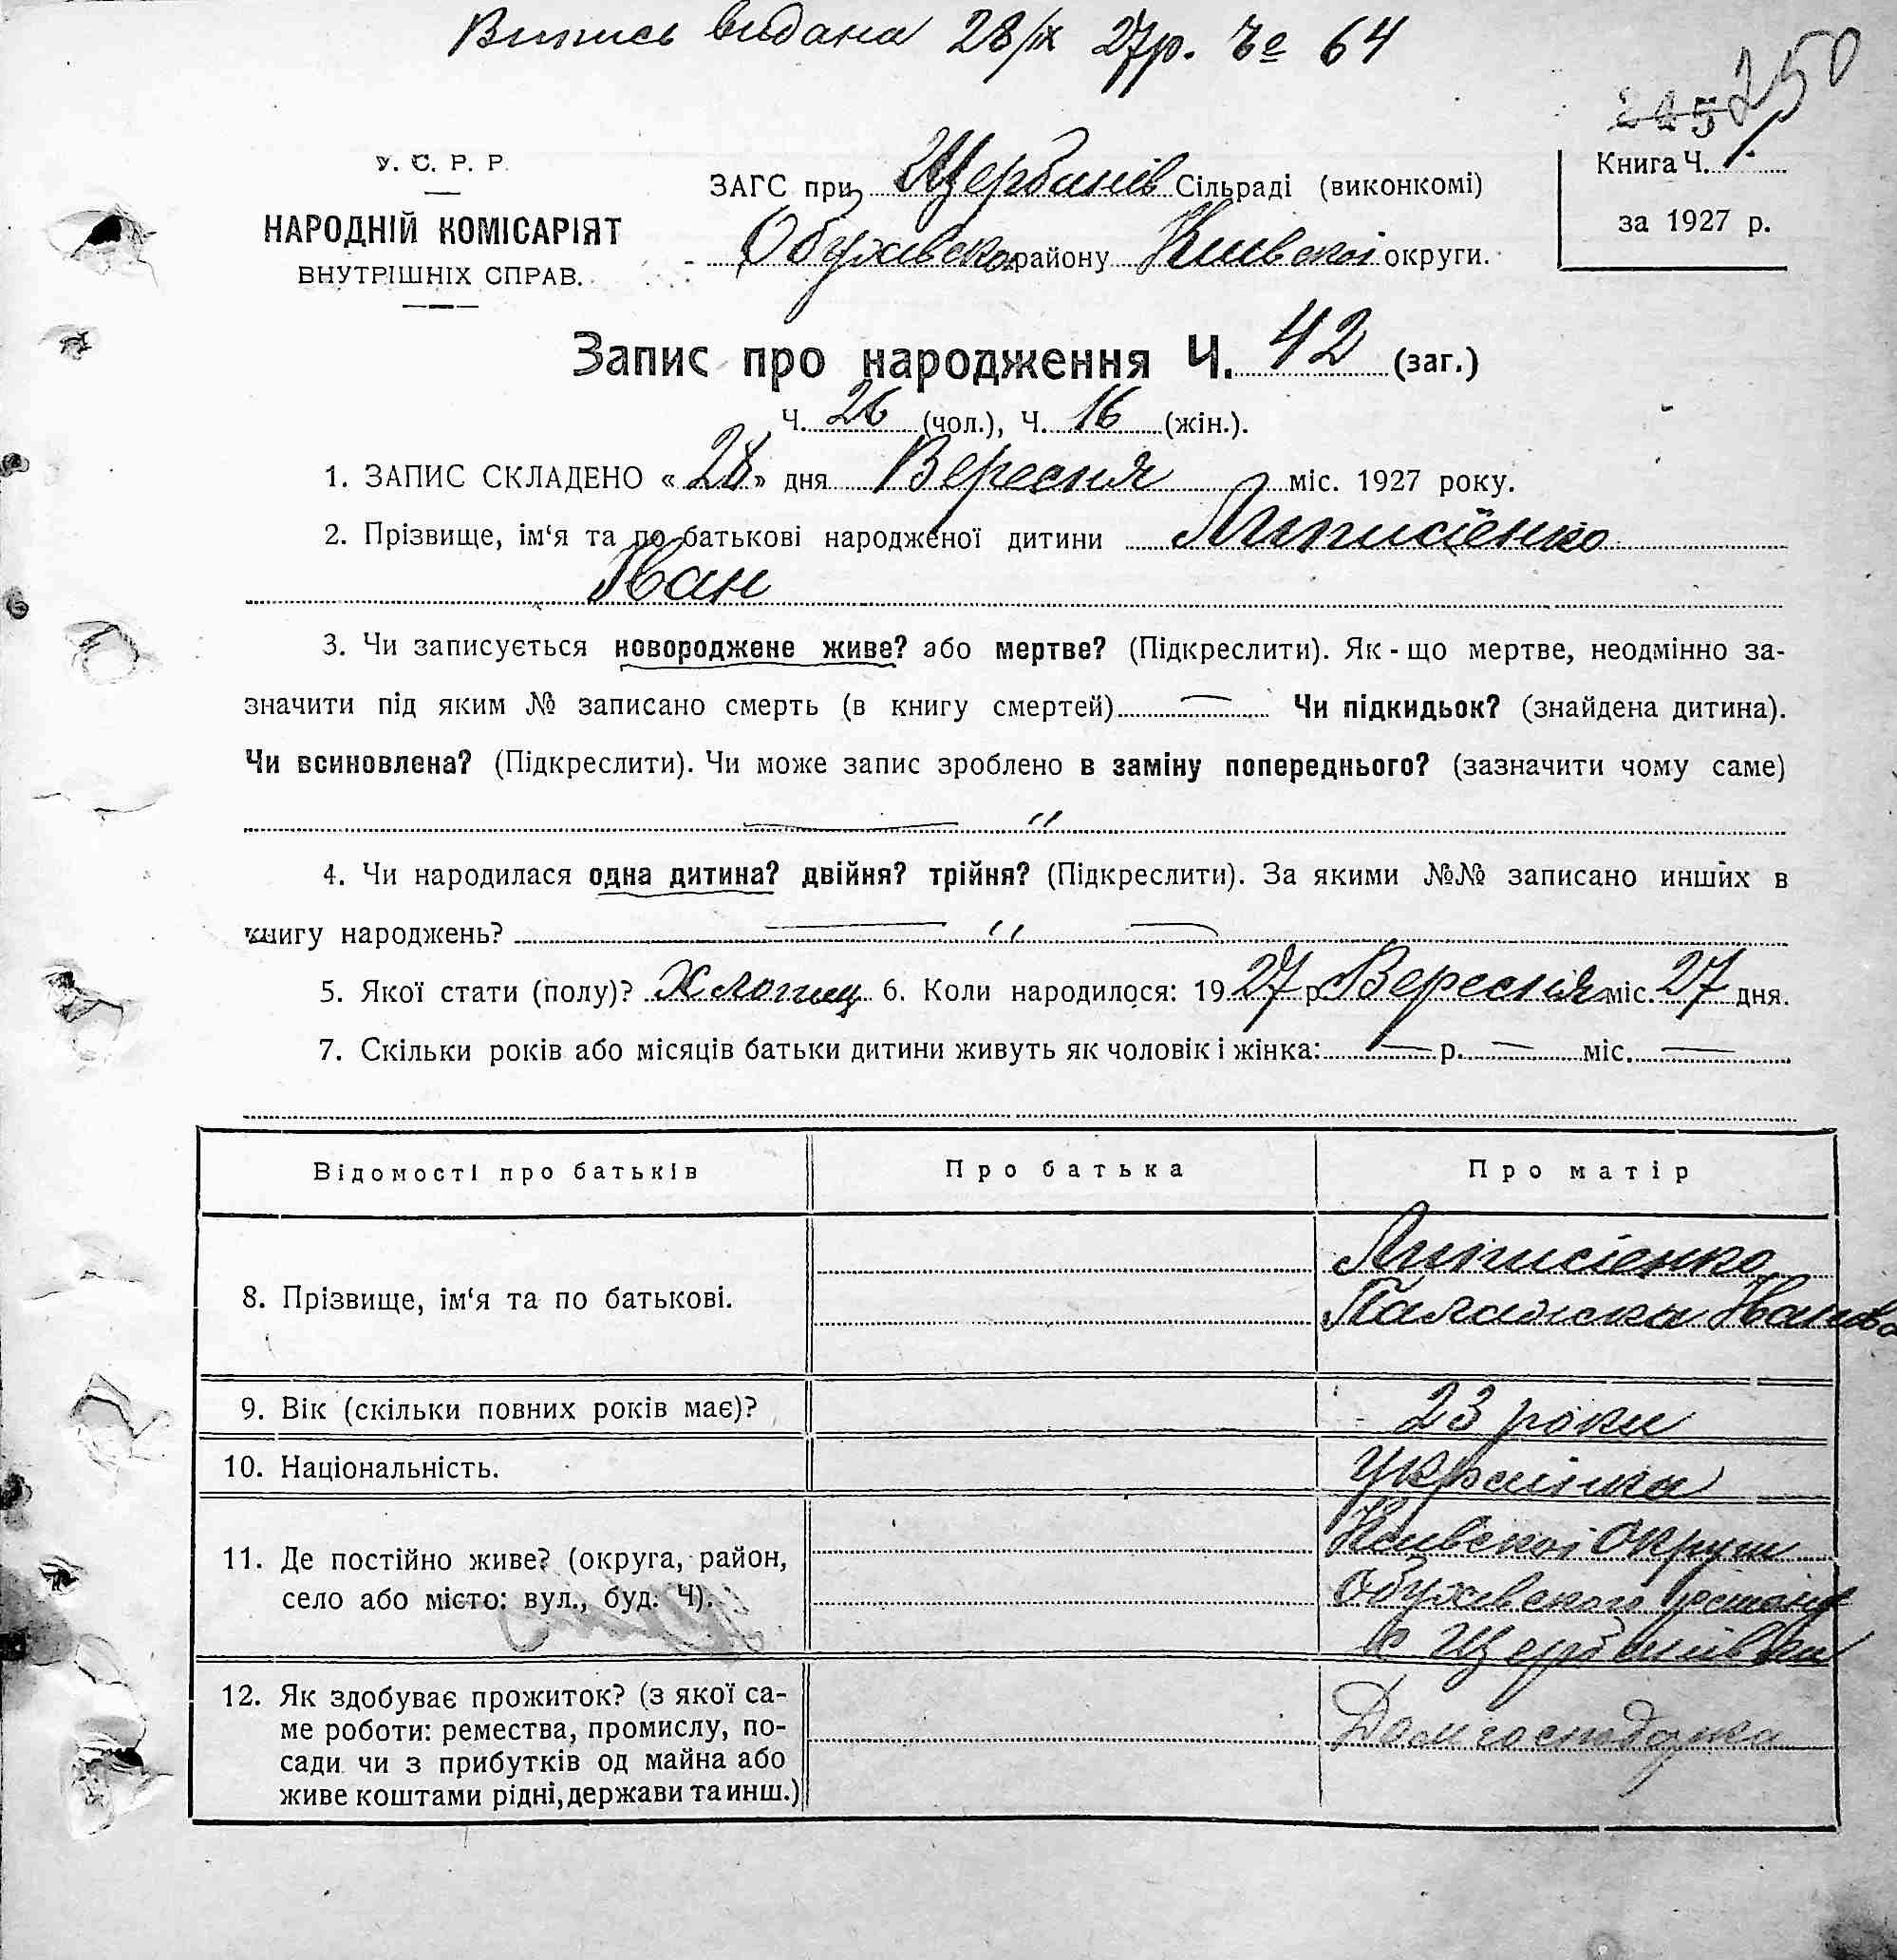 Випись видана 28/ІХ 27р. Чс 64
225 250
У. С. Р. Р.
НАРОДНІЙ КОМІСАРІЯТ
ВНУТРІШНІХ СПРАВ.
ЗАГС при Щербанів Сільраді (виконкомі)
Обухівськ району Київскої округи.
Книга Ч.
за 1927 р.
Запис про народження Ч. 42 (заг.)
Ч. 26 (чол.), Ч. 16 (жін.).
1. ЗАПИС СКЛАДЕНО « 28 » дня Вересня міс. 1927 року.
2. Прізвище, ім‘я та по батькові народженої дитини
Іван
3. Чи записується новороджене живе? або мертве? (Підкреслити). Як - що мертве, неодмінно за-
значити під яким № записано смерть (в книгу смертей) — Чи підкидьок? (знайдена дитина).
Чи всиновлена? (Підкреслити). Чи може запис зроблено в заміну попереднього? (зазначити чому саме)
— "
4. Чи народилася одна дитина? двійня? трійня? (Підкреслити). За якими №№ записано инших в
книгу народжень? — " —
5. Якої стати (полу)? Хлопец 6. Коли народилося: 19 27 р Вересня міс. 27 дня.
7. Скільки років або місяців батьки дитини живуть як чоловік і жінка: — р. — міс. —
Відомості про батьків Про батька Про матір
8. Прізвище, ім‘я та по батькові.
Палажка Іванов
9. Вік (скільки повних років має)? 23 роки
10. Національність. Українка
11. Де постійно живе? (округа, район, Київскої округи
село або місто: вул., буд. Ч). Обухівского
с Щербанівки
12. Як здобуває прожиток? (з якої са- Дом господарка
ме роботи: ремества, промислу, по-
сади чи з прибутків од майна або
живе коштами рідні, держави та инш.)